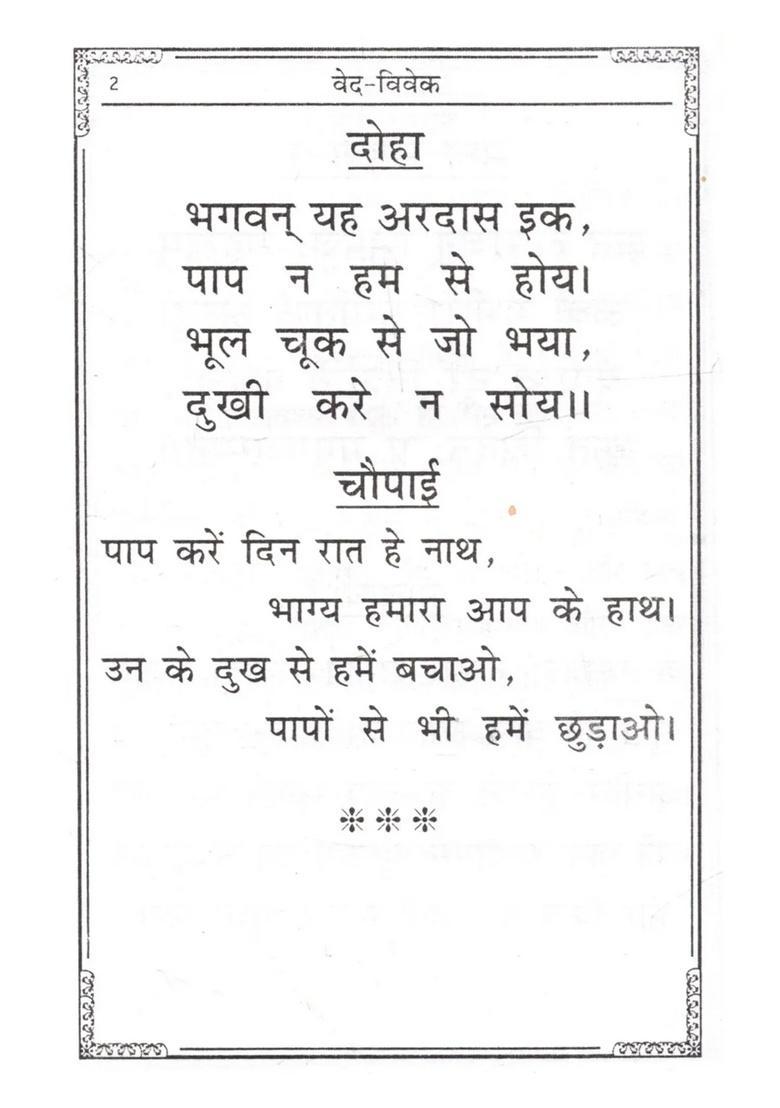 2
वेद-विवेक
दोहा
भगवन् यह अरदास इक,
पाप न हम से होय।
भूल चूक से जो भया,
दुखी करे न सोय॥
चौपाई
पाप करें दिन रात हे नाथ,
भाग्य हमारा आप के हाथ।
उन के दुख से हमें बचाओ,
पापों से भी हमें छुड़ाओ।